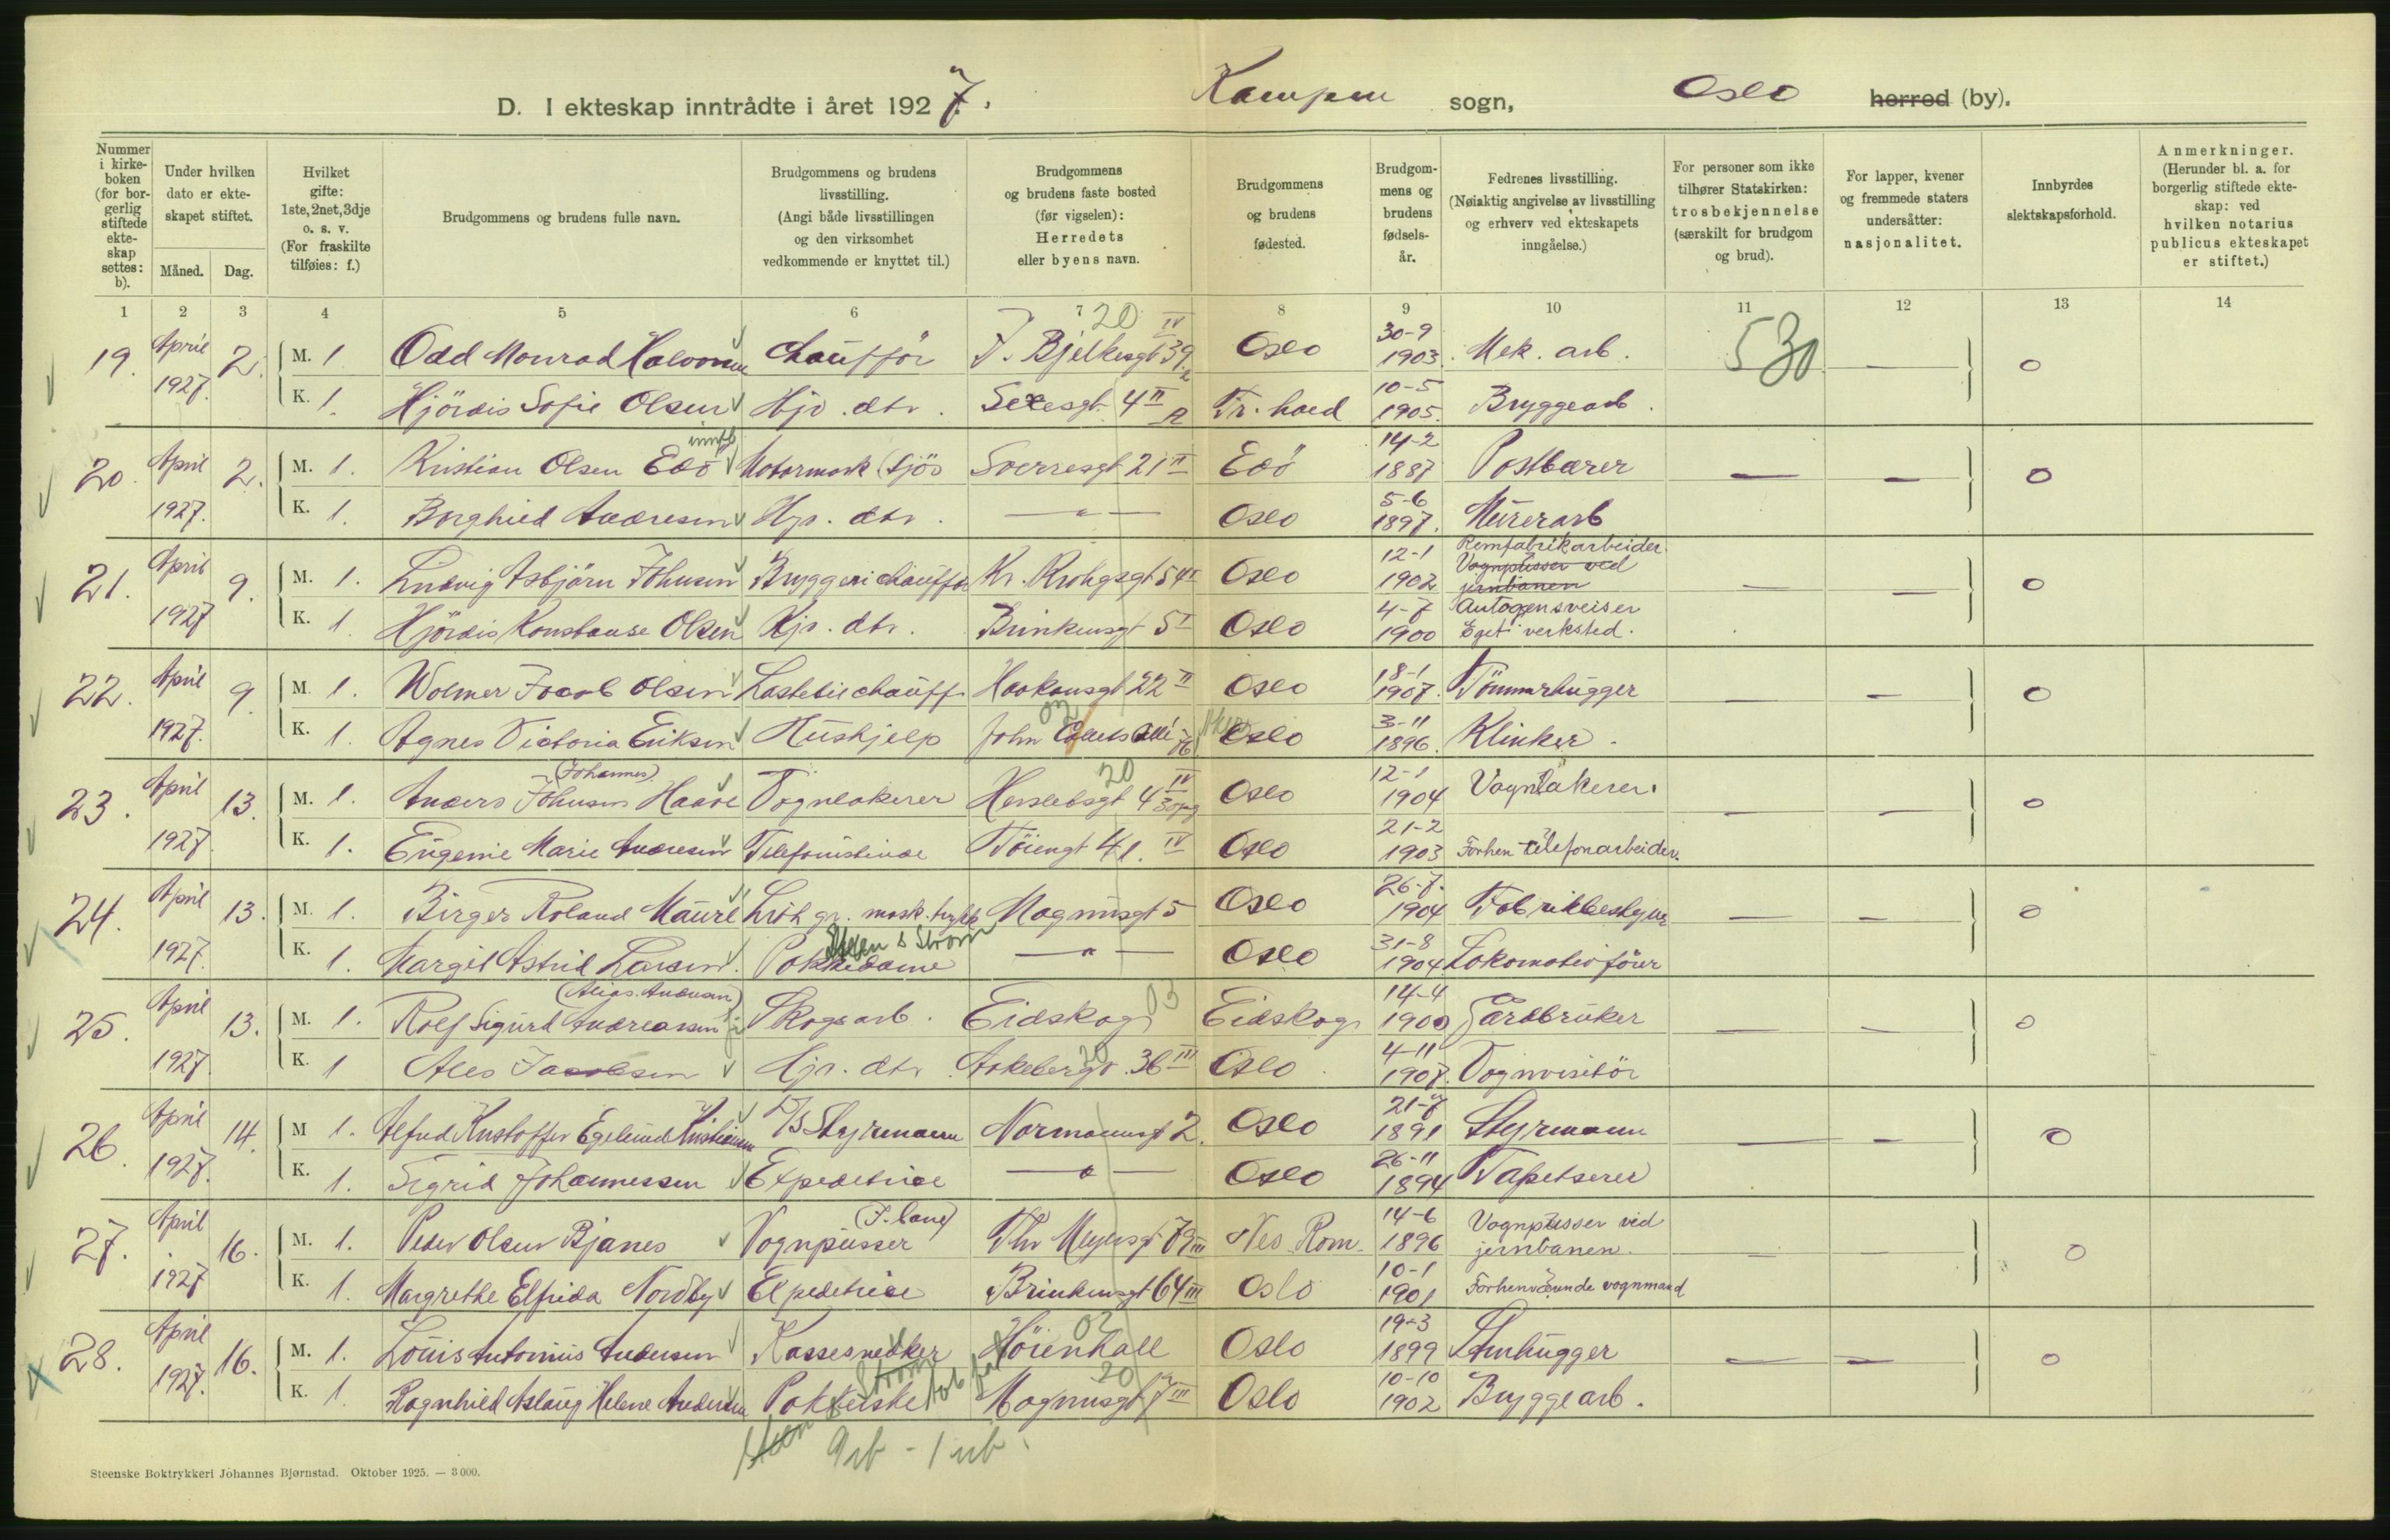 D. I ekteskap inntrådte i året 1927. Kampen sogn, Oslo herred (by).
Nummer i kirkeboken (for borgerlig stiftede ekteskap settes: b).
Under hvilken dato er ekteskapet stiftet.
Måned. Dag.
Hvilket gifte: 1ste, 2net, 3dje o. s. v. (For fraskilte tilføies: f.)
Brudgommens og brudens fulle navn.
Brudgommens og brudens livsstilling. (Angi både livsstillingen og den virksomhet vedkommende er knyttet til.)
Brudgommens og brudens faste bosted (før vigselen): Herredets eller byens navn.
Brudgommens og brudens fødested.
Brudgommens og brudens fødselsår.
Fedrenes livsstilling. (Nøiaktig angivelse av livsstilling og erhverv ved ekteskapets inngåelse.)
For personer som ikke tilhører Statskirken: trosbekjennelse (særskilt for brudgom og brud).
For lapper, kvener og fremmede staters undersåtter: nasjonalitet.
Innbyrdes slektskapsforhold.
Anmerkninger. (Herunder bl. a. for borgerlig stiftede ekteskap: ved hvilken notarius publicus ekteskapet er stiftet.)
1 2 3 4 5 6 7 8 9 10 11 12 13 14
20 530
19. April 1927. 2. M. 1 Odd Monrad Halvorsen chaufför J. Bjelkesgt 39 IV Oslo 30-9 1903. Mek. arb. — 0
K. 1. Hjördis Sofie Olsen Hjv. dtr. Sexesgt. 4 II Tr.hæd 10-5 1905. Bryggearb.
20. April 1927. 2. M. 1. Kristian Olsen Edö Motormask (sjös Sverresgt 21 II Edö 14-2 1887 Postbærer — — 0
K. 1. Borghild Andresen Hjv. dtr. — " — Oslo 5-6 1897. Murerarb
21. April 1927 9. M. 1. Ludvig Asbjörn Johnsen Bryggerichauffør Kr. Krohgsgt 54 II Oslo 12-1 1902 Remfabrikarbeider. Vognpusser ved jernbanen — — 0
K. 1. Hjördis Konstanse Olsen Hjv. dtr. Brinkensgt 5 I Oslo 4-7 1900 Autogensveiser Eget verksted.
22. April 1927. 9. M. 1. Wolmer Jacob Olsen Lastebilchauff. Haakonsgt 22 II Oslo 18-1 1907. Tömmerhugger — — 0
K. 1. Agnes Victoria Eriksen Huskjelp John Colletts allé 76 Oslo 3-11 1896. Klinker.
23. April 1927. 13. M. 1. Anders Johnsen (Johannes) Haave Vognlakerer Herslebsgt 4 IV 20 Oslo 12-1 1904 Vognlakerer. — — 0
K. 1. Eugenie Marie Andresen Telefonistinde Töiengt 41. IV Oslo 21-2 1903 Forhen telefonarbeider.
24. April 1927. 13. M. 1. Birger Roland Maure Lith gr. mask. trykk Magnusgt 5 Oslo 26-7. 1904 Fabrikkbestyrer — — 0
K. 1. Margit Astrid Larsen. Pakkedame Steen & Strøm — " — Oslo 31-8 1904 Lokomotivförer
25. April 1927. 13. M. 1. Rolf Sigurd Andreassen (Alias Andersen) Skogsarb. Eidskog 03 Eidskog 14-4 1900 Gårdbruker — — 0
K. 1 Alis Jacobsen Hjv. dtr. Aakebergv. 36 III 20 Oslo 4-11 1907. Vognvisitör
26. April 1927. 14. M 1. Alfred Kristoffer Egelund Kristiansen D/S Styrmann Normannsgt 2. Oslo 21-7 1891 Styrmann — — 0
K. 1. Sigrid Johannessen Expeditrice — " — Oslo 26-11 1894 Tapetserer
27. April 1927 16. M. 1. Peder Olsen Bjanes Vognpusser (J.bane) Thv Meyersgt 79 III Nes Rom. 14-6 1896 Vognpusser ved jernbanen. — — 0
K. 1. Margrethe Elfrida Nordby Expeditrice Brinkensgt 64 III Oslo 10-1 1901 Forhenværende vognmand
28. April 1927. 16. M. 1. Louis Antonius Andersen Kassesnedker Höienhall 02 Oslo 19-3 1899 Stenhugger — — 0
K. 1 Ragnhild Aslaug Helene Andersen Pakkerske Magnusgt 7 III 20 Oslo 10-10 1902 Bryggearb.
Steen Strøm tob fab
9 ub - 1 ub.
Steenske Boktrykkeri Johannes Bjørnstad. Oktober 1925. — 3 000.